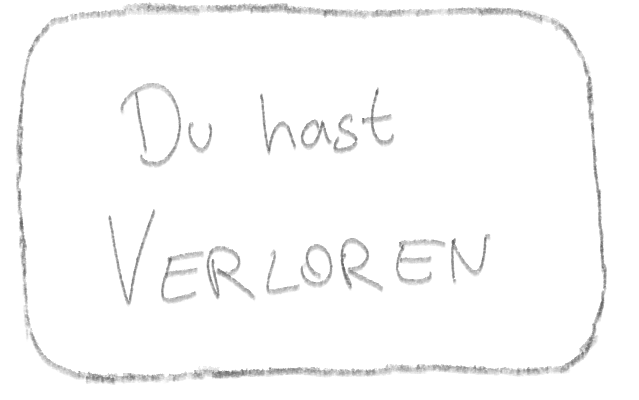 Du hast
VERLOREN